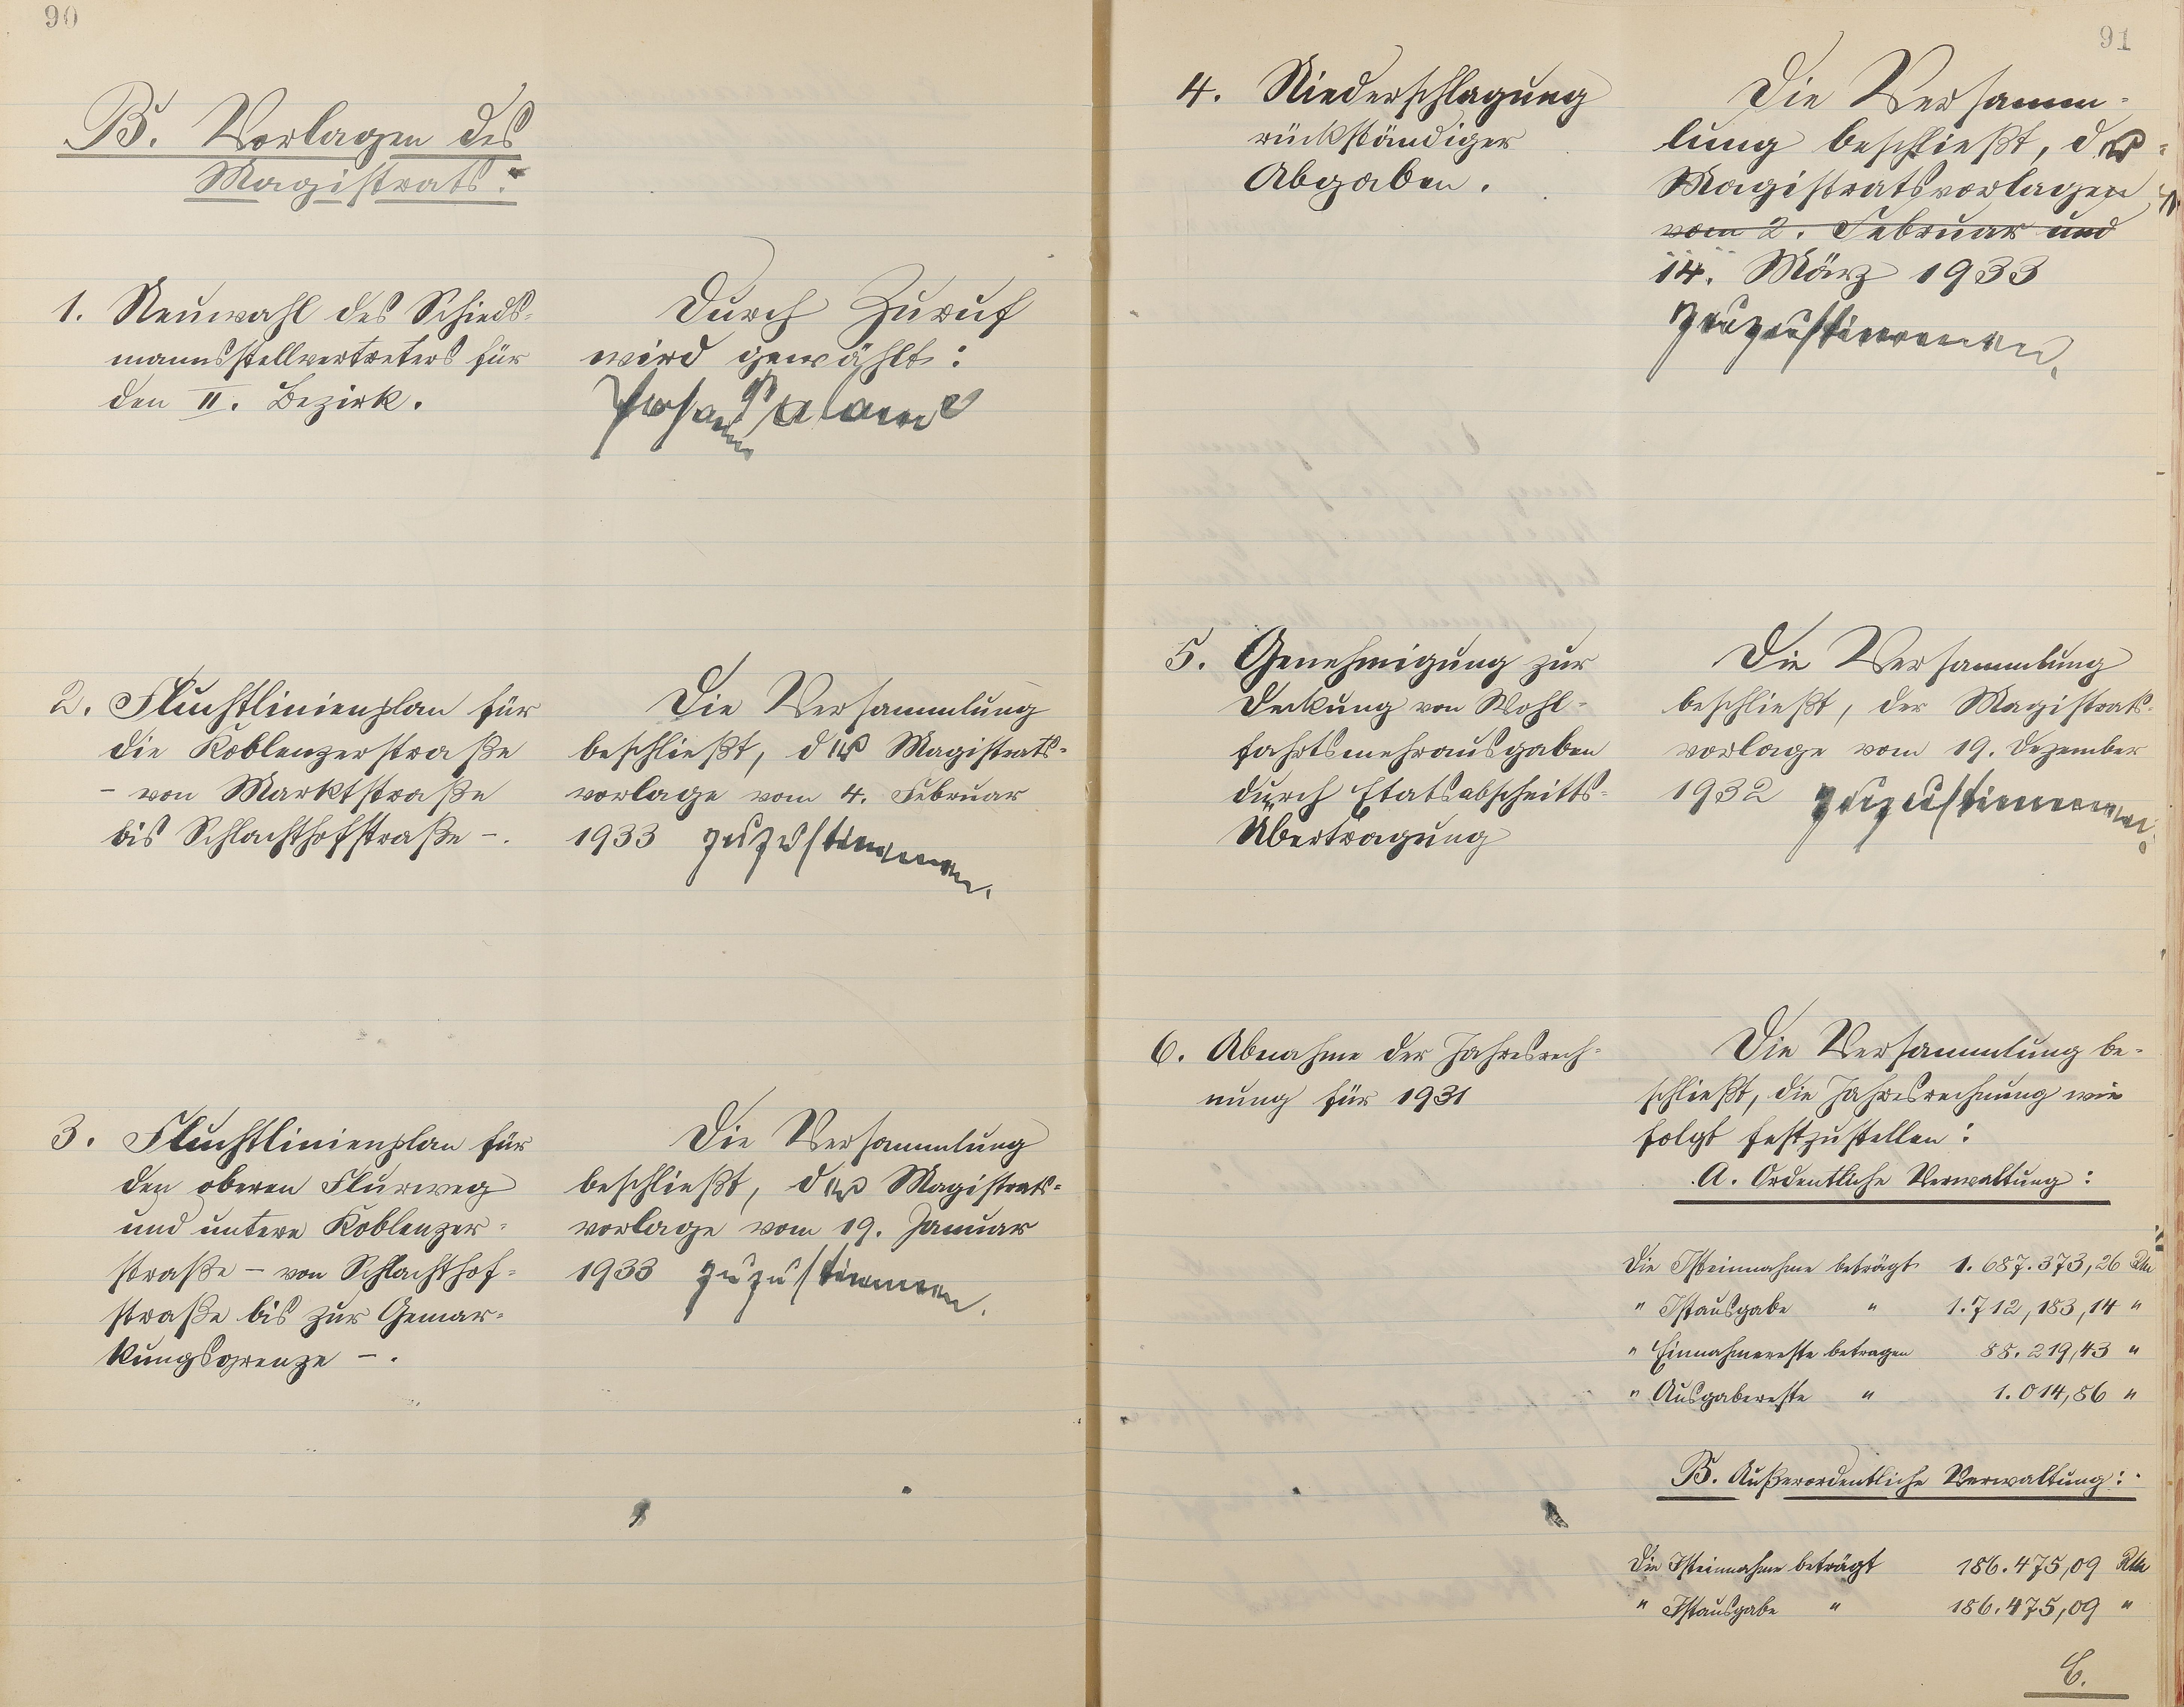 90
B. Vorlagen des
Magistrats:
1. Neuwahl des Schieds-
mannsstellvertreters für
den II. Bezirk.
Durch Zuruf
wird gewählt:
2. Fluchtlinienplan für
die Koblenzerstraße
- von Marktstraße
bis Schlachthofstraße -.
Die Versammlung
beschließt, der Magistrats-
vorlage vom 4. Februar
1933 zuzustimmen.
3. Fluchtlinienplan für
den oberen Flurweg
und untere Koblenzer-
straße - von Schlachthof-
straße bis zur Gemar-
kungsgrenze -.
Die Versammlung
beschließt, der Magistrats-
vorlage vom 19. Januar
1933 zuzustimmen.
91
4. Niederschlagung
rückständiger
Abgaben.
Die Versamm-
lung beschließt, der
Magistratsvorlagen
vom 2. Februar und
14. März 1933
zuzustimmen.
5. Genehmigung zur
Deckung von Wohl-
fahrtsmehrausgaben
durch Etatsabschnitts-
Übertragung
Die Versammlung
beschließt, der Magistrats-
vorlage vom 19. Dezember
1932 zuzustimmen.
6. Abnahme der Jahresrech-
nung für 1931
Die Versammlung be-
schließt, die Jahresrechnung wie
folgt festzustellen:
A. Ordentliche Verwaltung:
Die Isteinnahme beträgt 1.687.373,26 RM
" Istausgabe " 1.712,183,14 "
" Einnahmereste betragen 88.219,43 "
" Ausgabereste " 1.014,86 "
B. Außerordentliche Verwaltung:
Die Isteinnahme beträgt 186.475,09 RM
" Istausgabe " 186.475,09 "
C.